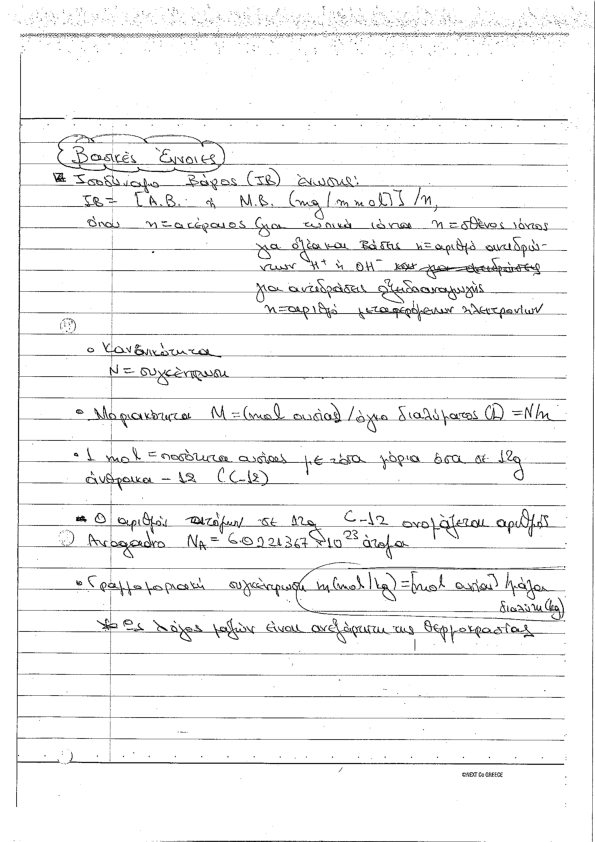 Βασικές Έννοιες
Ισοδύναμο Βάρος (IB) ένωσης:
IB = [A.B. ή M.B. (mg/mmol)] /n,
όπου n=ακέραιος (για τυπικά ιόντα n=σθένος ιόντος
για οξέα και βάσεις n=αριθμό αντιδρώ-
ντων H⁺ ή OH⁻ και για αντιδράσεις
για αντιδράσεις οξειδοαναγωγής
n=αριθμό μεταφερόμενων ηλεκτρονίων
• Κανονικότητα
N = συγκέντρωση
• Μοριακότητα M = (mol ουσίας) /όγκο διαλύματος (L) = N/n
• 1 mol = ποσότητα ουσίας με τόσα μόρια όσα σε 12g
άνθρακα - 12 (C-12)
• Ο αριθμός ατόμων σε 12g C-12 ονομάζεται αριθμός
Avogadro N_A = 6.0221367 × 10²³ άτομα
• Γραμμομοριακή συγκέντρωση m(mol/kg) = [mol ουσίας] /μάζα
διαλύτη (kg)
* Ως λόγος μαζών είναι ανεξάρτητη της θερμοκρασίας
©NEXT Co GREECE